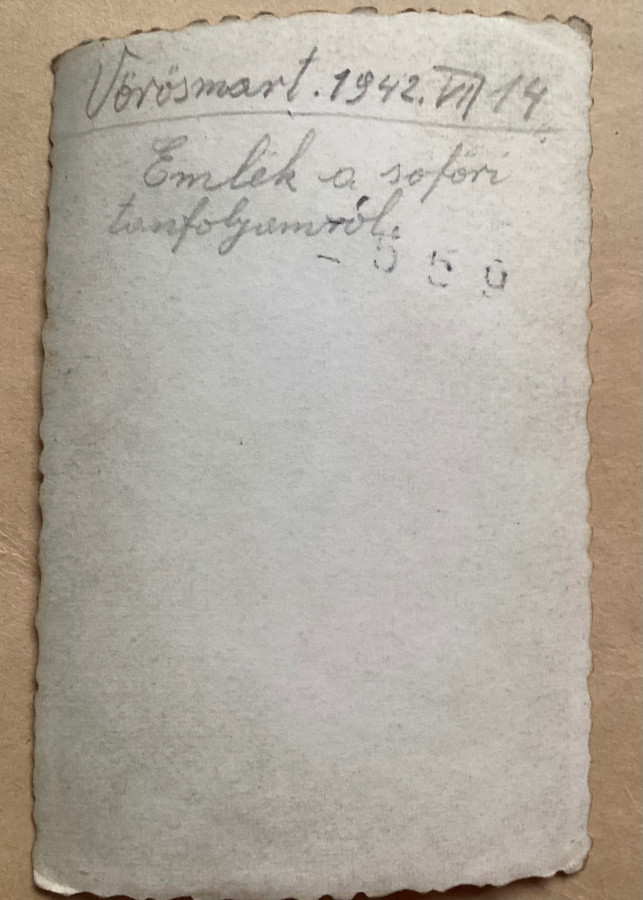 Vörösmart. 1942. VII 14
Emlék a soföri
tanfolyamról.
- 559